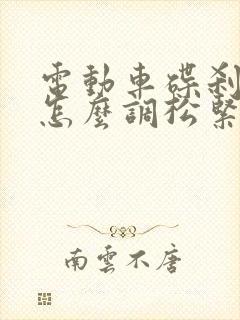 電動車碟剎
怎麼調松緊
南雲不唐